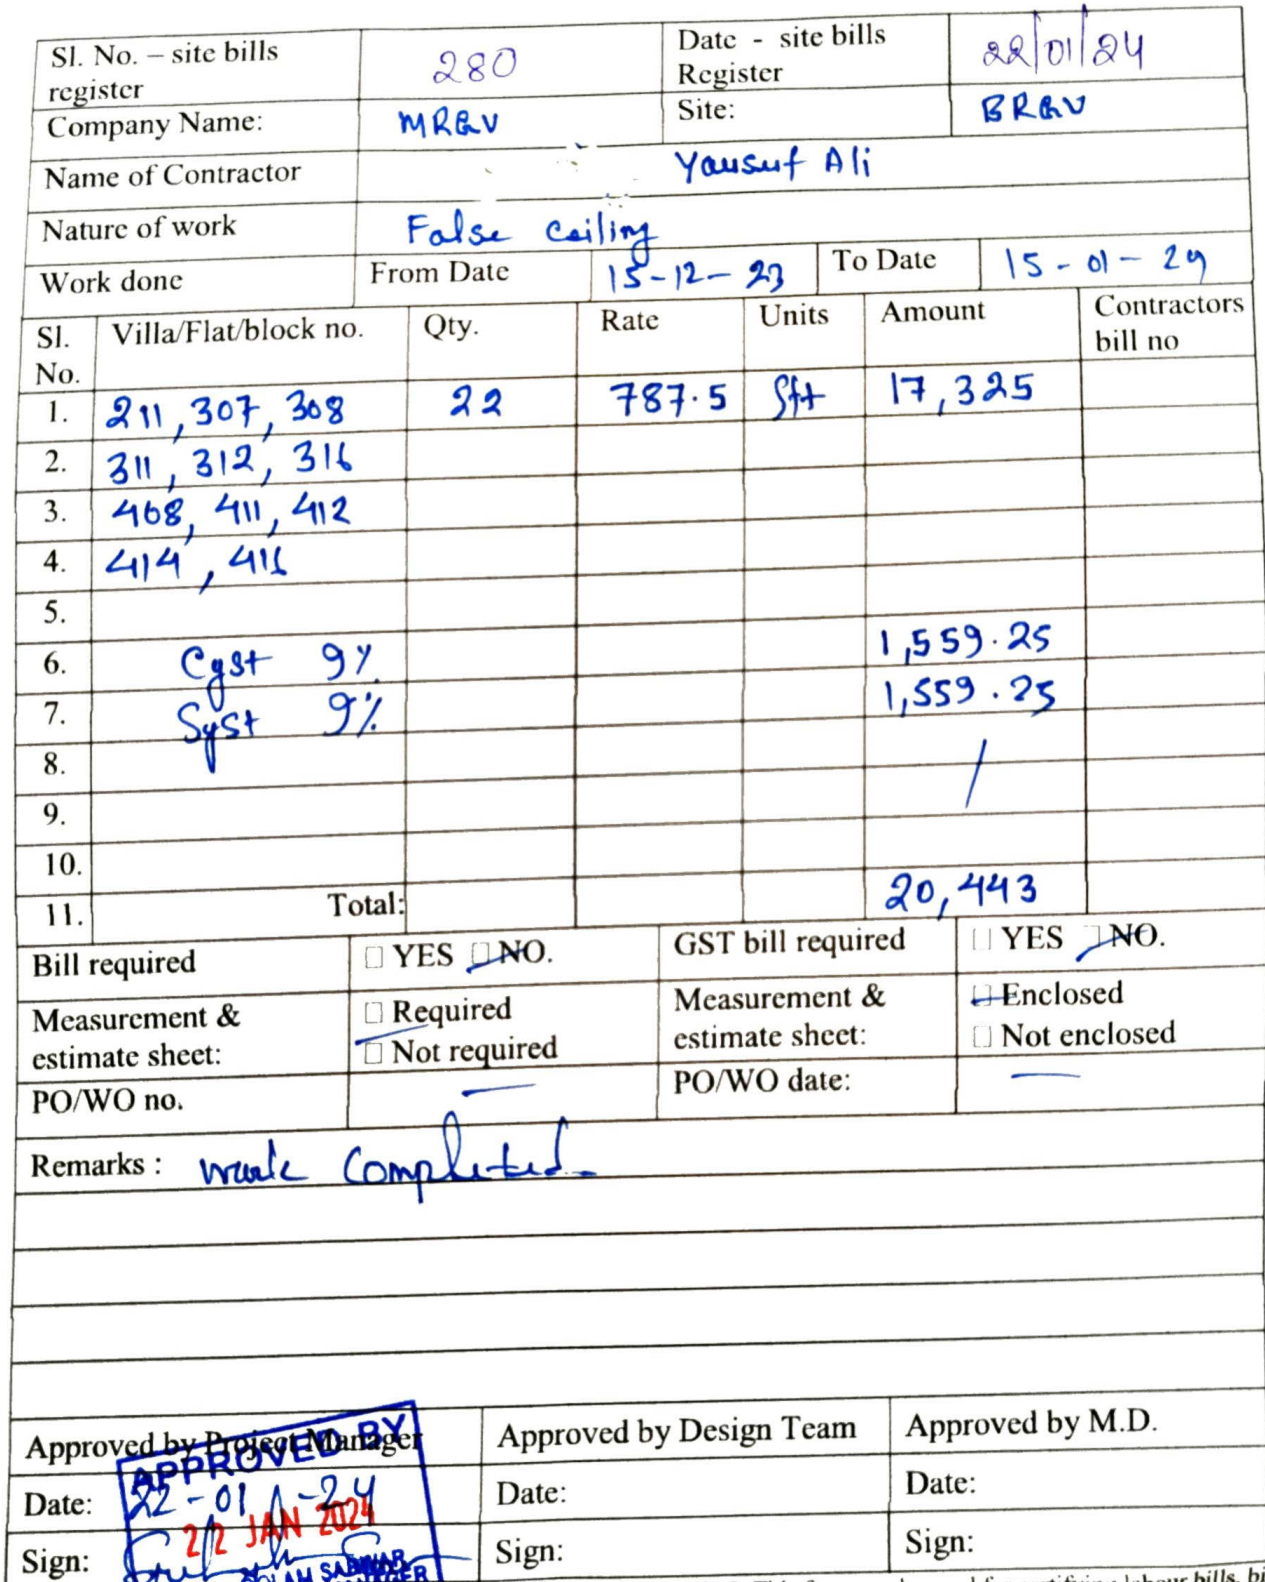 Sl. No. – site bills register 280 Date - site bills Register 22/01/24
Company Name: MRGV Site: BRGV
Name of Contractor Yousuf Ali
Nature of work False ceiling
Work done From Date 15-12-23 To Date 15-01-24
Sl. No. Villa/Flat/block no. Qty. Rate Units Amount Contractors bill no
1. 211, 307, 308 22 787.5 Sft 17,325
2. 311, 312, 316
3. 408, 411, 412
4. 414, 416
5.
6. Cgst 9% 1,559.25
7. Sgst 9% 1,559.25
8. /
9.
10.
11. Total: 20,443
Bill required ☐ YES ☐ NO. GST bill required ☐ YES ☐ NO.
Measurement & estimate sheet: ☐ Required ☐ Not required Measurement & estimate sheet: ☐ Enclosed ☐ Not enclosed
PO/WO no. — PO/WO date: —
Remarks : work completed
Approved by Project Manager Approved by Design Team Approved by M.D.
APPROVED BY
Date: 22-01-24 Date: Date:
22 JAN 2024
Sign: Sign: Sign: